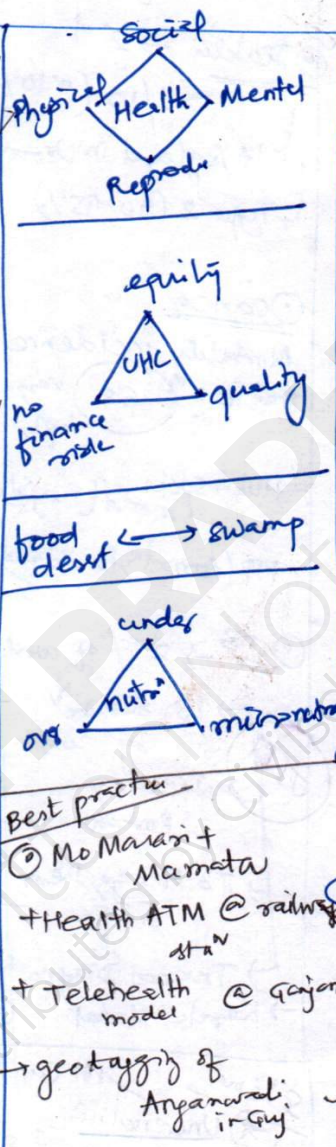 Social
Physical Health Mental
Reprodu
equity
UHC
no quality
finance
risk
food ⟷ swamp
desert
under
nutrⁿ
over micronutr
Best practice
① Mo Masari +
Mamata
+ Health ATM @ railway
staⁿ
+ Telehealth @ Ganjam
model
→ geotagging of
Anganwadi
in Guj